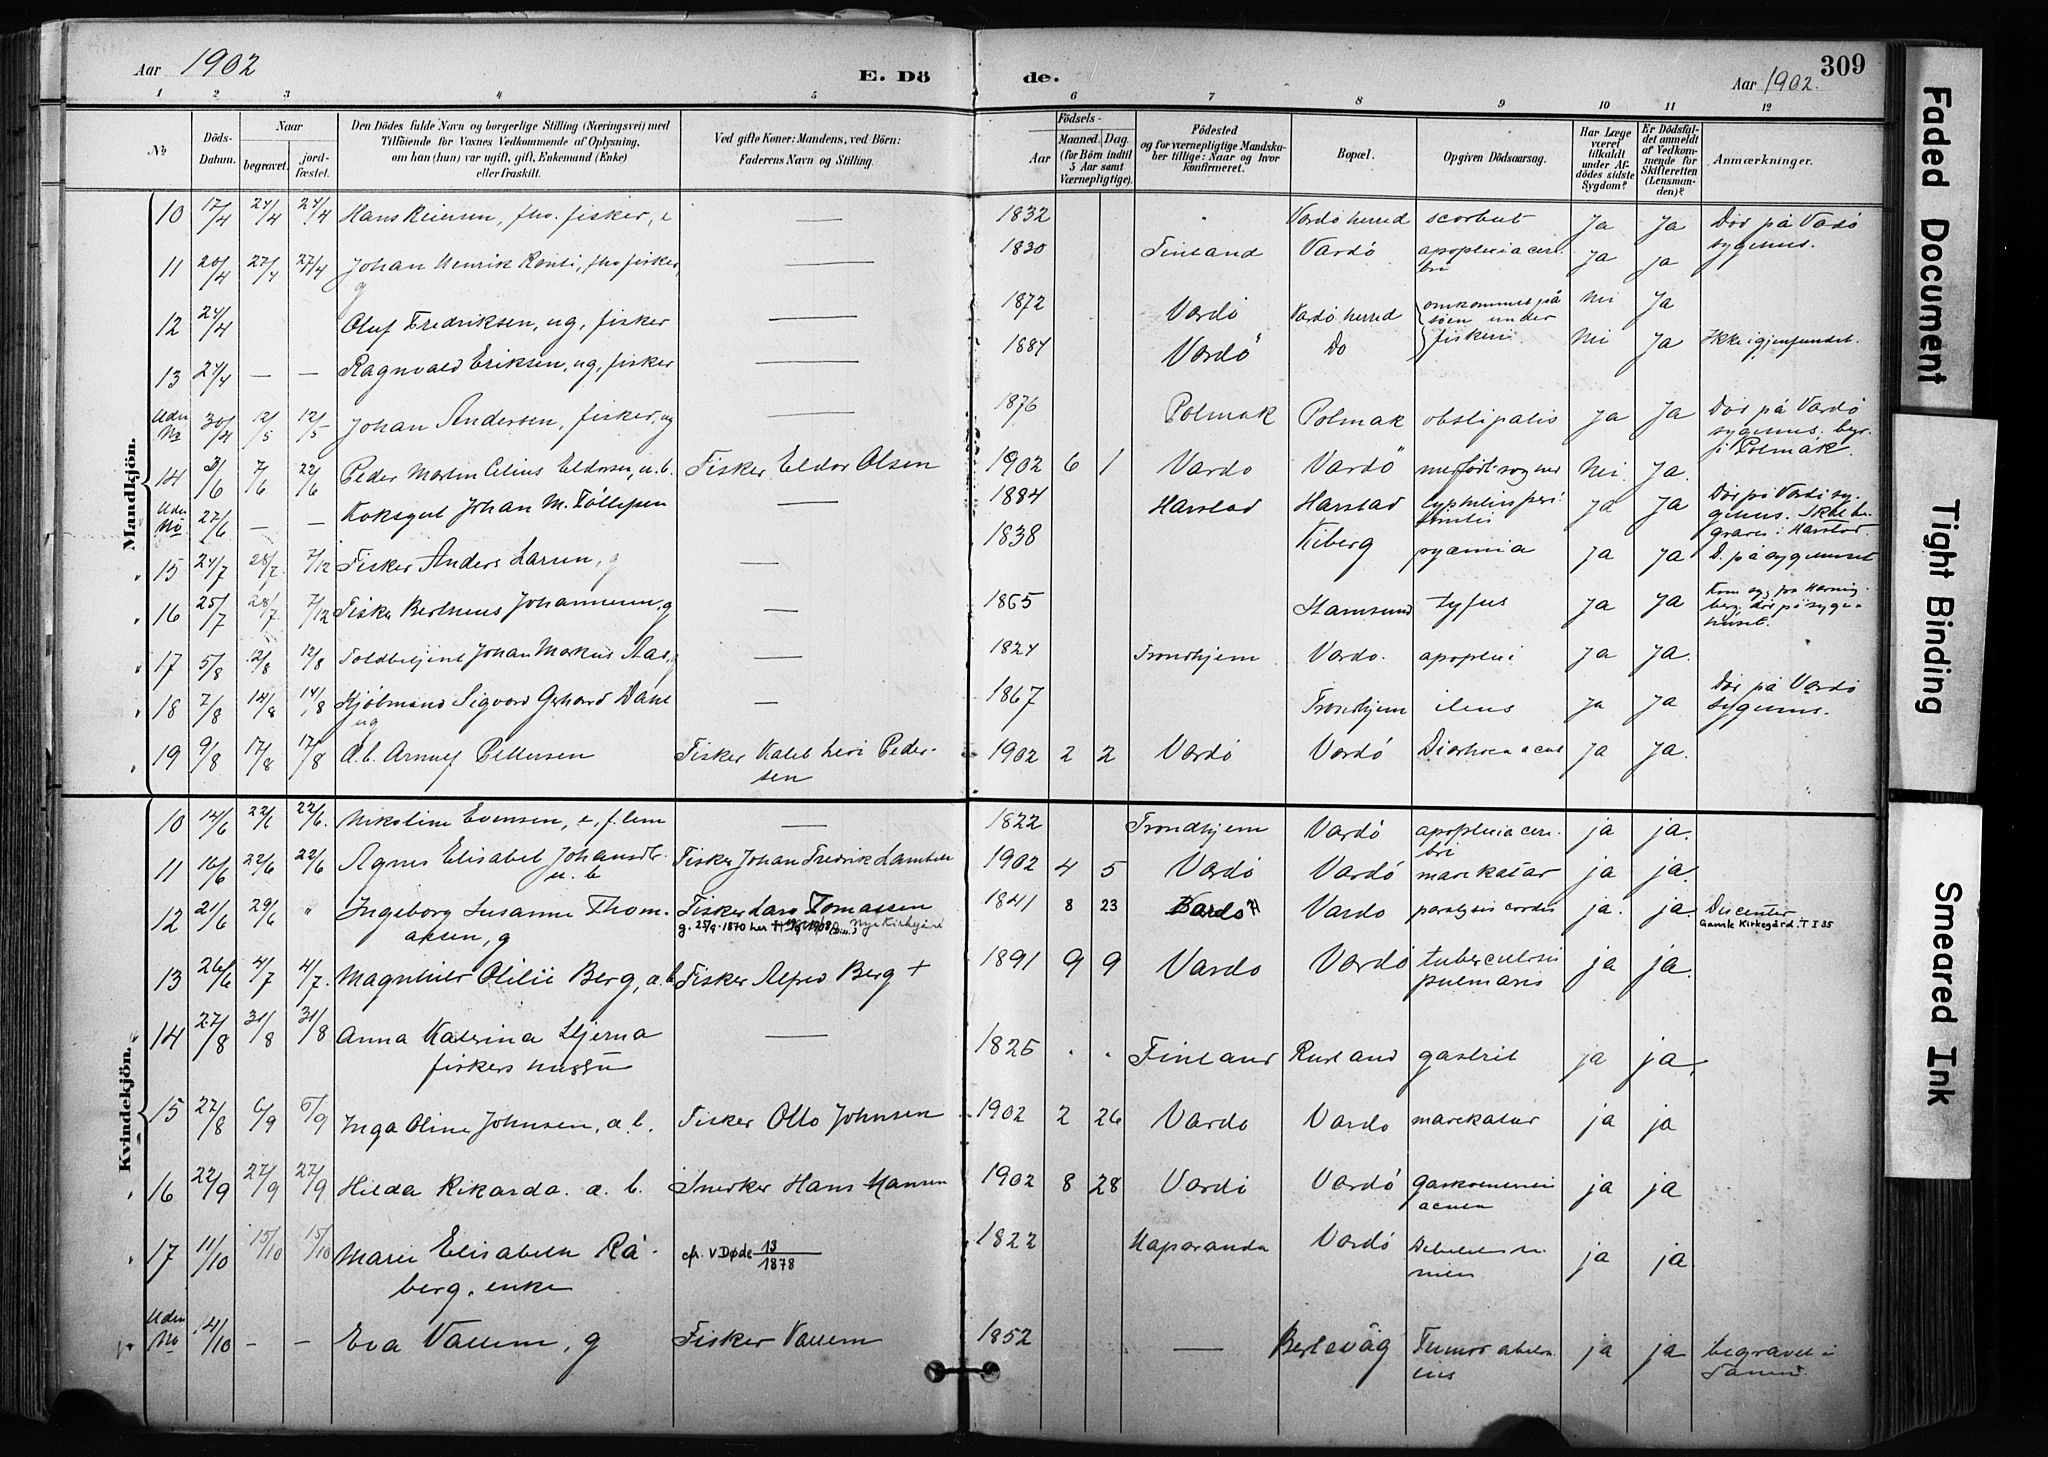 Aar 1902
E. Dö
de.
Aar 1902.
309
1 2 3 4 5 6 7 8 9 10 11 12
No
Döds-Datum.
Naar
begravet.
jord-fæstet.
Den Dödes fulde Navn og borgerlige Stilling (Næringsvei) med
Tilföiende for Voxnes Vedkommende af Oplysning,
om han (hun) var ugift, gift, Enkemand (Enke)
eller fraskilt.
Ved gifte Koner: Mandens, ved Börn:
Faderens Navn og Stilling.
Födsels-
Aar
Maaned. Dag.
(for Börn indtil
5 Aar samt
Værnepligtige).
Födested
og for værnepligtige Mandska-
ber tillige: Naar og hvor
konfirmeret.
Bopæl.
Opgiven Dödsaarsag.
Har Læge
været
tilkaldt
under Af-
dödes sidste
Sygdom?
Er Dödsfal-
det anmeldt
af Vedkom-
mende for
Skifteretten
(Lensman-
den)?
Anmærkninger.
Mandkjön.
10 17/4 24/4 24/4 Hans Reiersen, fhv. fisker, e — 1832 Vardö herred scorbut Ja Ja Död på Vardö
sygehus.
11 20/4 27/4 27/4 Johan Henrik Konti, fhv fisker, g — 1830 Finland Vardö apoplexia cere-
bri Ja ja
12 24/4 Oluf Fredriksen, ug, fisker — 1872 Vardö Vardö herred omkommet på
söen under
fiskeri. Nei Ja
13 24/4 — — Ragnvald Eriksen, ug, fisker — 1884 Vardö Do Nei Ja Ikke igjenfundet.
Uden No 30/4 12/5 12/5 Johan Andersen, fisker, ug — 1876 Polmak Polmak obstipatio Ja Ja Död på Vardö
sygehus. begr.
i Polmak.
14 3/6 7/6 22/6 Peder Martin Eldorsen, u. b. Fisker Eldor Olsen 1902 6 1 Vardö Vardö Nei. Ja.
Uden No 27/6 — — Koksgut Johan M. Tollefsen — 1884 Harstad Harstad Ja Ja Död på Vardö sy-
gehus. Skal be-
graves i Harstad.
15 24/7 28/7 7/12 Fisker Anders Larsen, g — 1838 Kiberg pyæmia Ja Ja D. på sygehuset
16 25/7 28/7 7/12 Fisker Bertheus Johannesen, g — 1865 Stamsund tyfus Ja Ja Kom syg fra Havning-
berg. död på syge-
huset.
17 5/8 12/8 12/8 Toldbetjent Johan Markus Aas, — 1824 Trondhjem Vardö. apoplexi Ja Ja.
18 7/8 14/8 14/8 Kjöbmand Sigvard Gerhard Dahl
ug — 1867 Trondhjem ileus Ja Ja Död på Vardö
sygehus.
19 9/8 17/8 17/8 Æ. b. Arnulf Pettersen Fisker Kaleb Levi Peder-
sen 1902 2 2 Vardö Vardö Diarhoea acut Ja Ja.
Kvindekjön.
10 14/6 22/6 22/6. Nikoline Evensen, e, f. lem — 1822 Trondhjem Vardö apoplexia cere-
bri ja ja.
11 16/6 22/6 22/6 Agnes Elisabet Johansdtr.
u. b Fisker Johan Fredrik 1902 4 5 Vardö Vardö mavekatar ja ja.
12 21/6 29/6 " Ingeborg Susanne Thom-
assen, g Fisker Lars Tomassen
g. 25/9 1870 her Nye Kirkegård 1841 8 23 Vardö Vardö paralysis cordis ja. ja.
Gamle Kirkegård. T I 35
13 26/6 4/7 4/7. Magnhild Otilie Berg, æ. b Fisker Alfred Berg + 1891 9 9 Vardö Vardö tuberculosis
pulmonis ja ja.
14 27/8 31/8 31/8 Anna Katrina Stjerna
fiskers hustru — 1825 . . Finland Rusland gastrit ja ja,
15 27/8 6/9 6/9 Inga Oline Johnsen, æ. b. Fisker Otto Johnsen 1902 2 26 Vardö Vardö mavekatar ja ja
16 22/9 27/9 27/9 Hilda Rikarda. æ. b. Snekker Hans Hansen 1902 8 28 Vardö Vardö
acuta ja ja
17 11/10 15/10 15/10 Marie Elisabeth Rå-
berg, enke cfr. V Døde 13/1878 1822 Haparanda Vardö ja ja.
Uden No 14/10 — — Eva Vallem, g Fisker Vallem 1852 — Berlevåg Tumor abdom-
inis ja ja begravet i
Tanen
Faded Document
Tight Binding
Smeared Ink